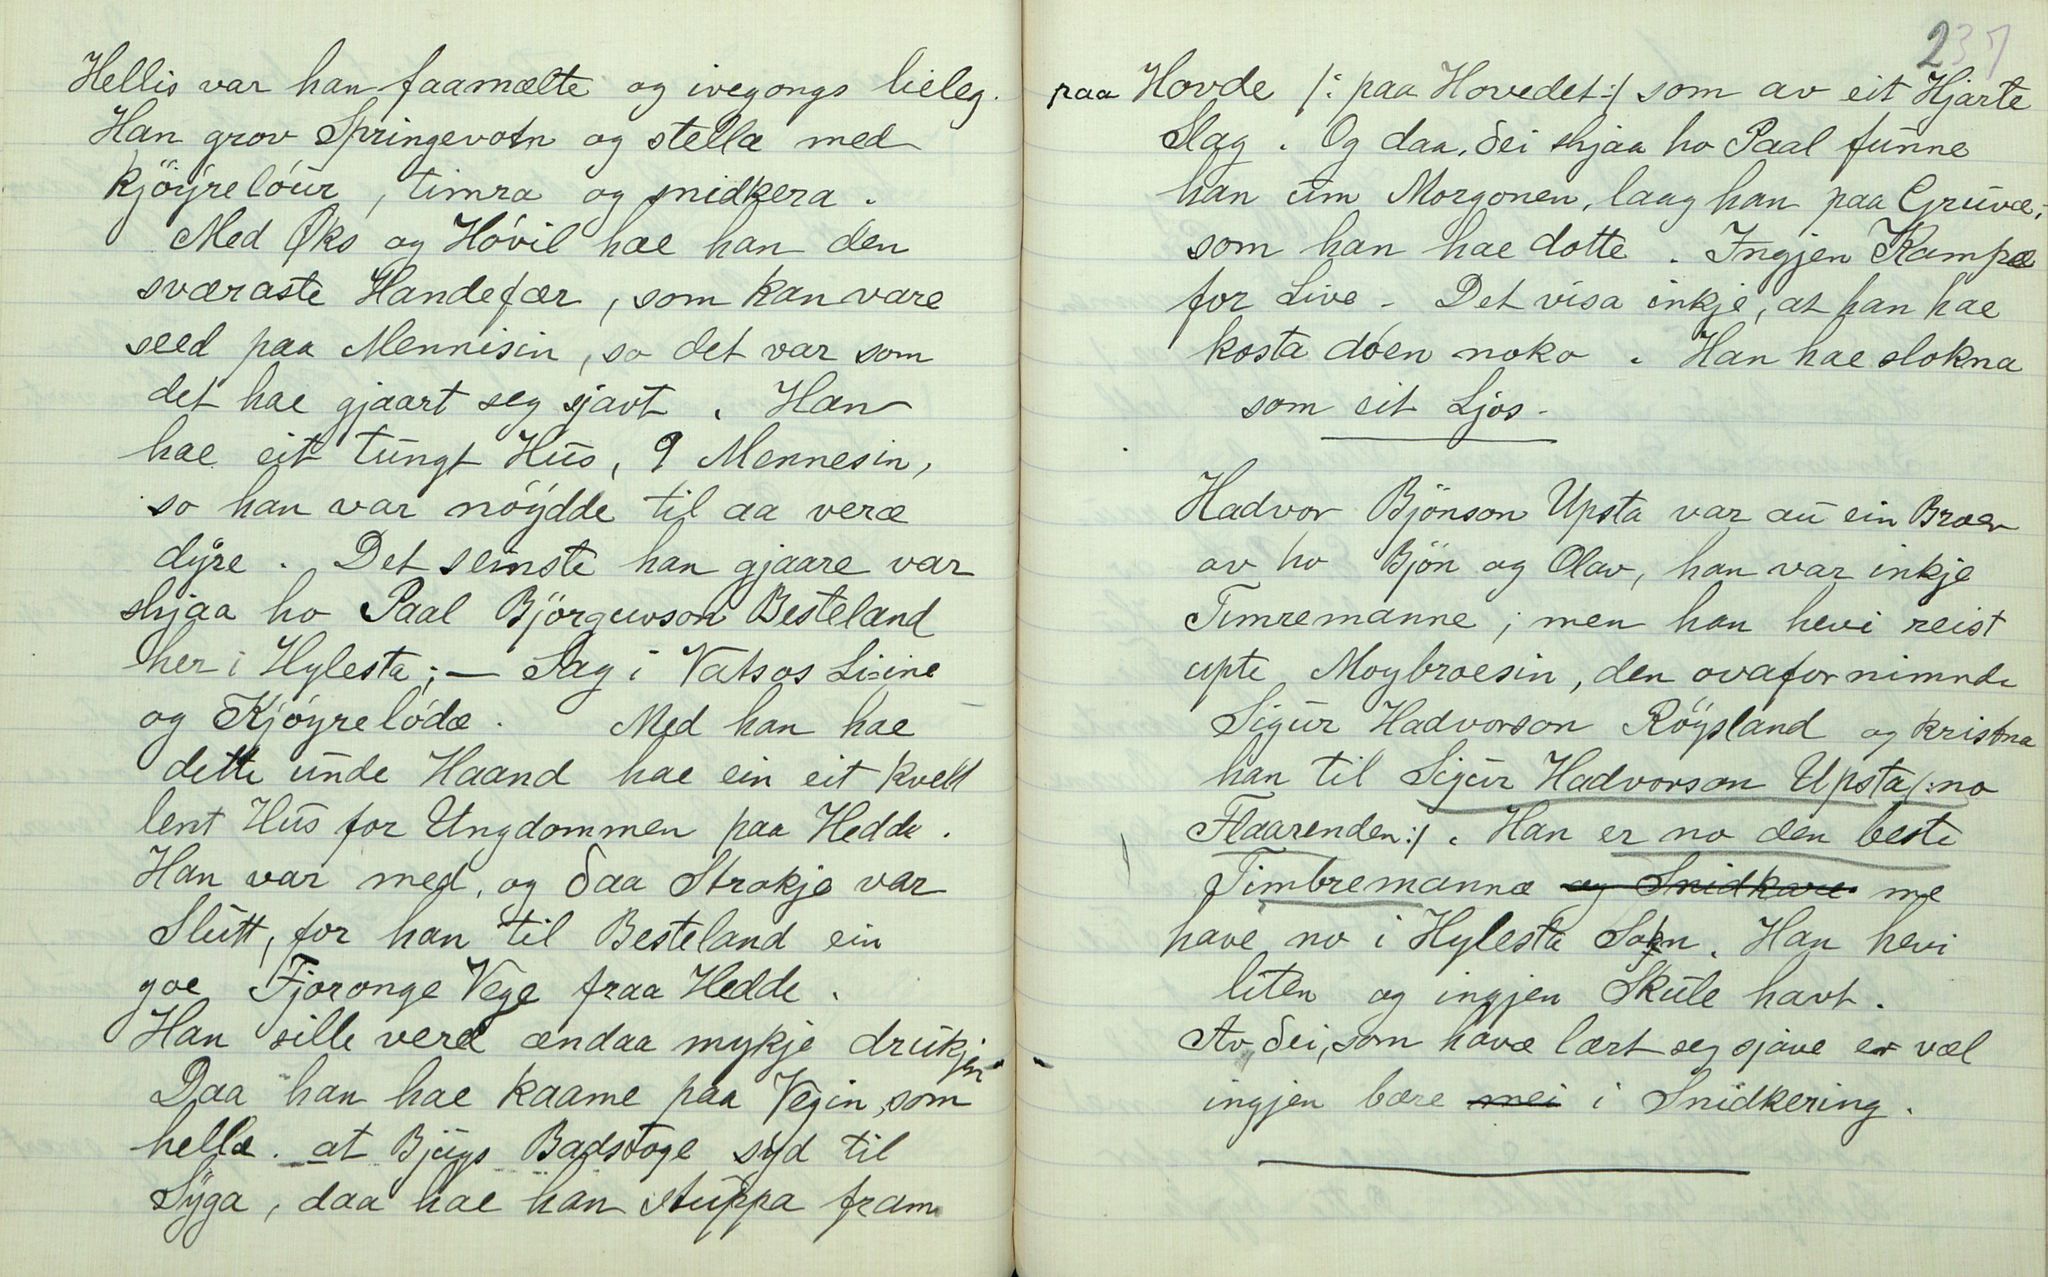 Hellis var han faamælte og ivegongs lieleg.
Han grov Springevotn og stella med
kjöÿrelóur, timra og snidkera.
Med Øks og Hóvil hae han den
sværaste Handefær, som kan vare
seed paa Mennisin, so det var som
det hae gjaart seg sjavt. Han
hae eit tungt Hus, 9 Mennesin,
so han var nöÿdde til aa veræ
dÿre. Det seinste han gjaare var
shjaa ho Paal Björguvson Besteland
her i Hylesta; — Sag i Vatsos Liine
og Kjöyrelódæ. Med han hae
dette unde Haand hae ein eit kvell
lent Hus for Ungdommen paa Hedde.
Han var med, og daa Strokje var
Slutt, for han til Besteland ein
goe Fjoronge Vege fraa Hedde.
Han sille veræ ændaa mykje drukjen
Daa han hae kaame paa Vegin, som
hellæ at Bjugs Badstoge syd til
Syga, daa hae han stuppa fram
237
paa Hovde /: paa Hovedet :/ som av eit Hjarte
Slag. Og daa, dei shjaa ho Paal funne
han um Morgonen, laag han paa Gruve,
som han hae dotte. Ingjen Kampæ
for Live - Det visa inkje, at han hae
kosta döen noko. Han hae slokna
som eit Ljos -
Hadvor Bjönson Upsta var au ein Broer
av ho Bjön og Olav, han var inkje
Timremanne; men han hevi reist
upte Moybroesin, den ovafornimnde
Sigur Hadvorson Röysland og kristna
han til Sigur Hadvorson Upsta /: no
Flaarenden :/. Han er no den beste
Timbremannæ og Snidkare me
have no i Hylesta Sokn. Han hevi
liten og ingjen Skule havt.
Av dei, som havæ lært seg sjave er væl
ingjen bære mei i Snidkering.